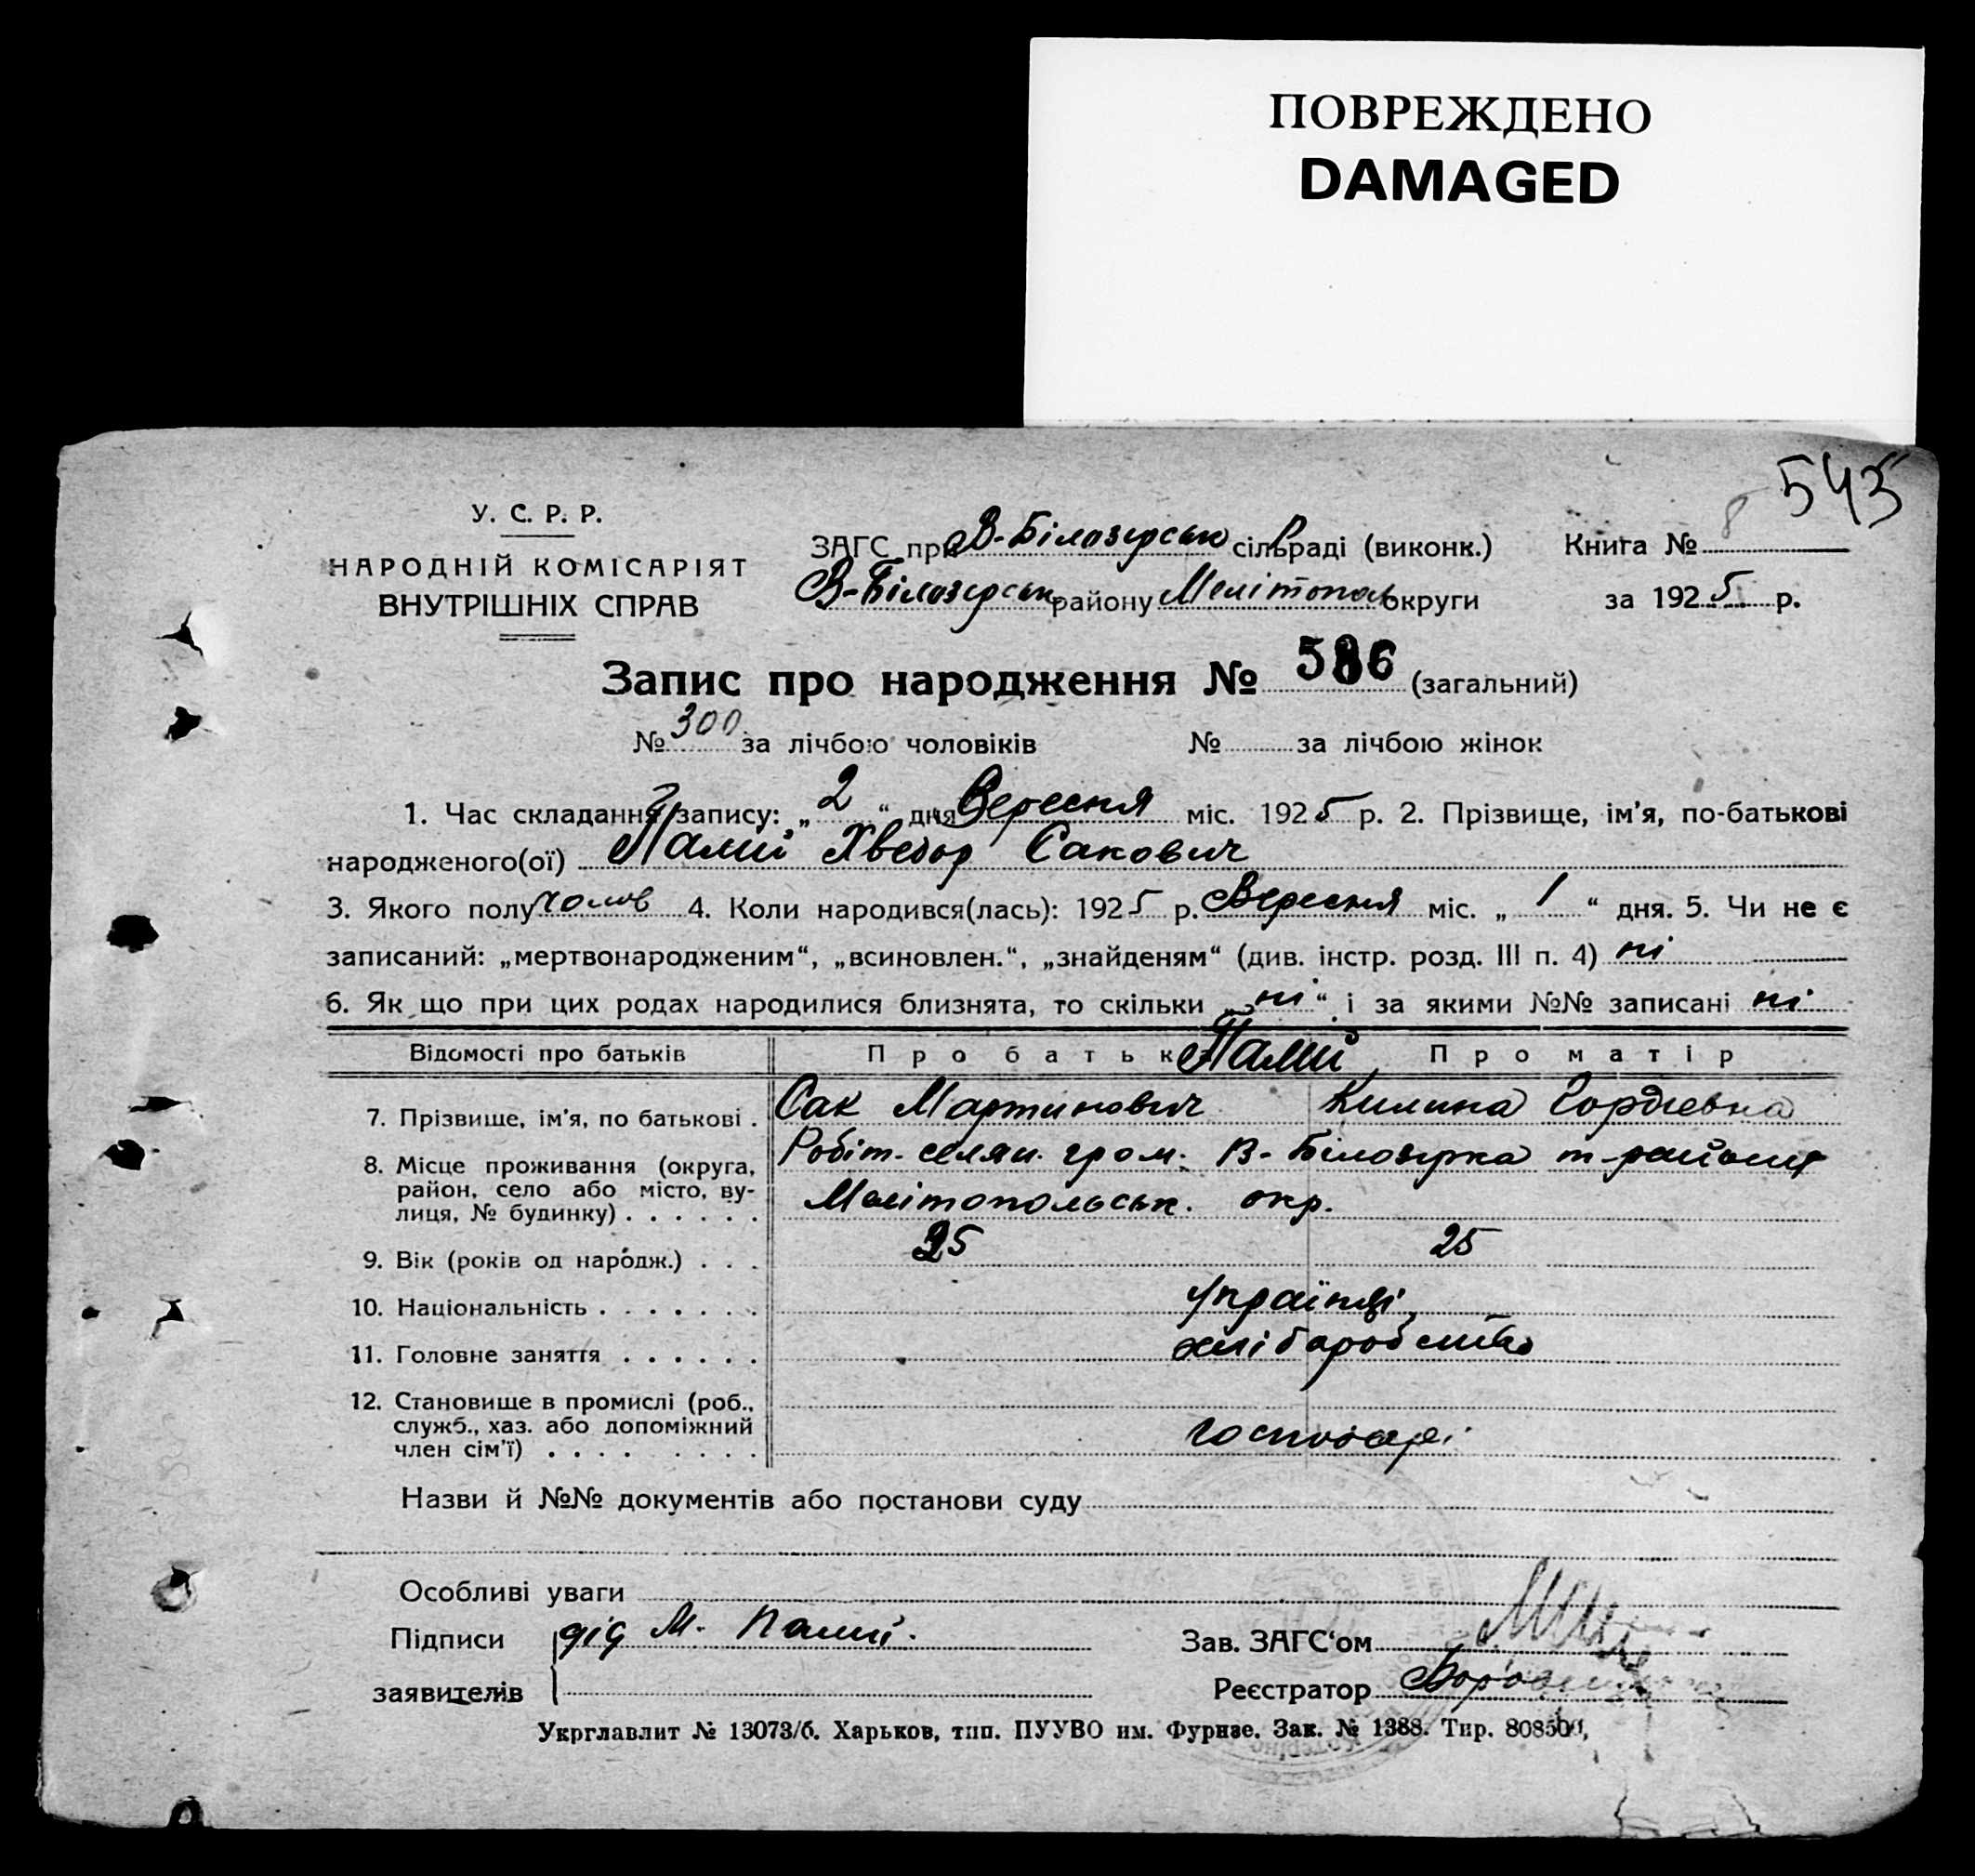 ПОВРЕЖДЕНО
DAMAGED
543
У. С. Р. Р.
НАРОДНІЙ КОМІСАРІЯТ
ВНУТРІШНІХ СПРАВ
ЗАГС при В-Білозерськ сільраді (виконк.)
В-Білозерськ району Мелітопол округи
Книга № 8
за 1925 р.
Запис про народження № 586 (загальний)
№ 300 за лічбою чоловіків № за лічбою жінок
1. Час складання запису: „2“ дня Вересня міс. 1925 р. 2. Прізвище, ім'я, по-батькові
народженого(ої) Палий Хведор Сакович
3. Якого полу чолов 4. Коли народився(лась): 1925 р. Вересня міс. „1“ дня. 5. Чи не є
записаний: „мертвонародженим“, „всиновлен.“, „знайденям“ (див. інстр. розд. III п. 4) ні
6. Як що при цих родах народилися близнята, то скільки „ні“ і за якими №№ записані ні
Відомості про батьків Про батьк Палий Про матір
7. Прізвище, ім'я, по батькові . Сак Мартинович Килина Гордієвна
8. Місце проживання (округа, Робіт. селян. гром. В-Білозірка т-району
район, село або місто, ву-
лиця, № будинку) . . . . . . Мелітопольськ. окр.
9. Вік (років од народж.) . . . 25 25
10. Національність . . . . . . . Українці
11. Головне заняття . . . . . . хліборобство
12. Становище в промислі (роб.,
служб., хаз. або допоміжний
член сім'ї) . . . . . . . . господарі
Назви й №№ документів або постанови суду
Особливі уваги
Підписи дід М. Палий.
заявителів
Зав. ЗАГС'ом
Реєстратор
Укрглавлит № 13073/б. Харьков, тип. ПУУВО им. Фрунзе. Зак. № 1388. Тир. 808500,